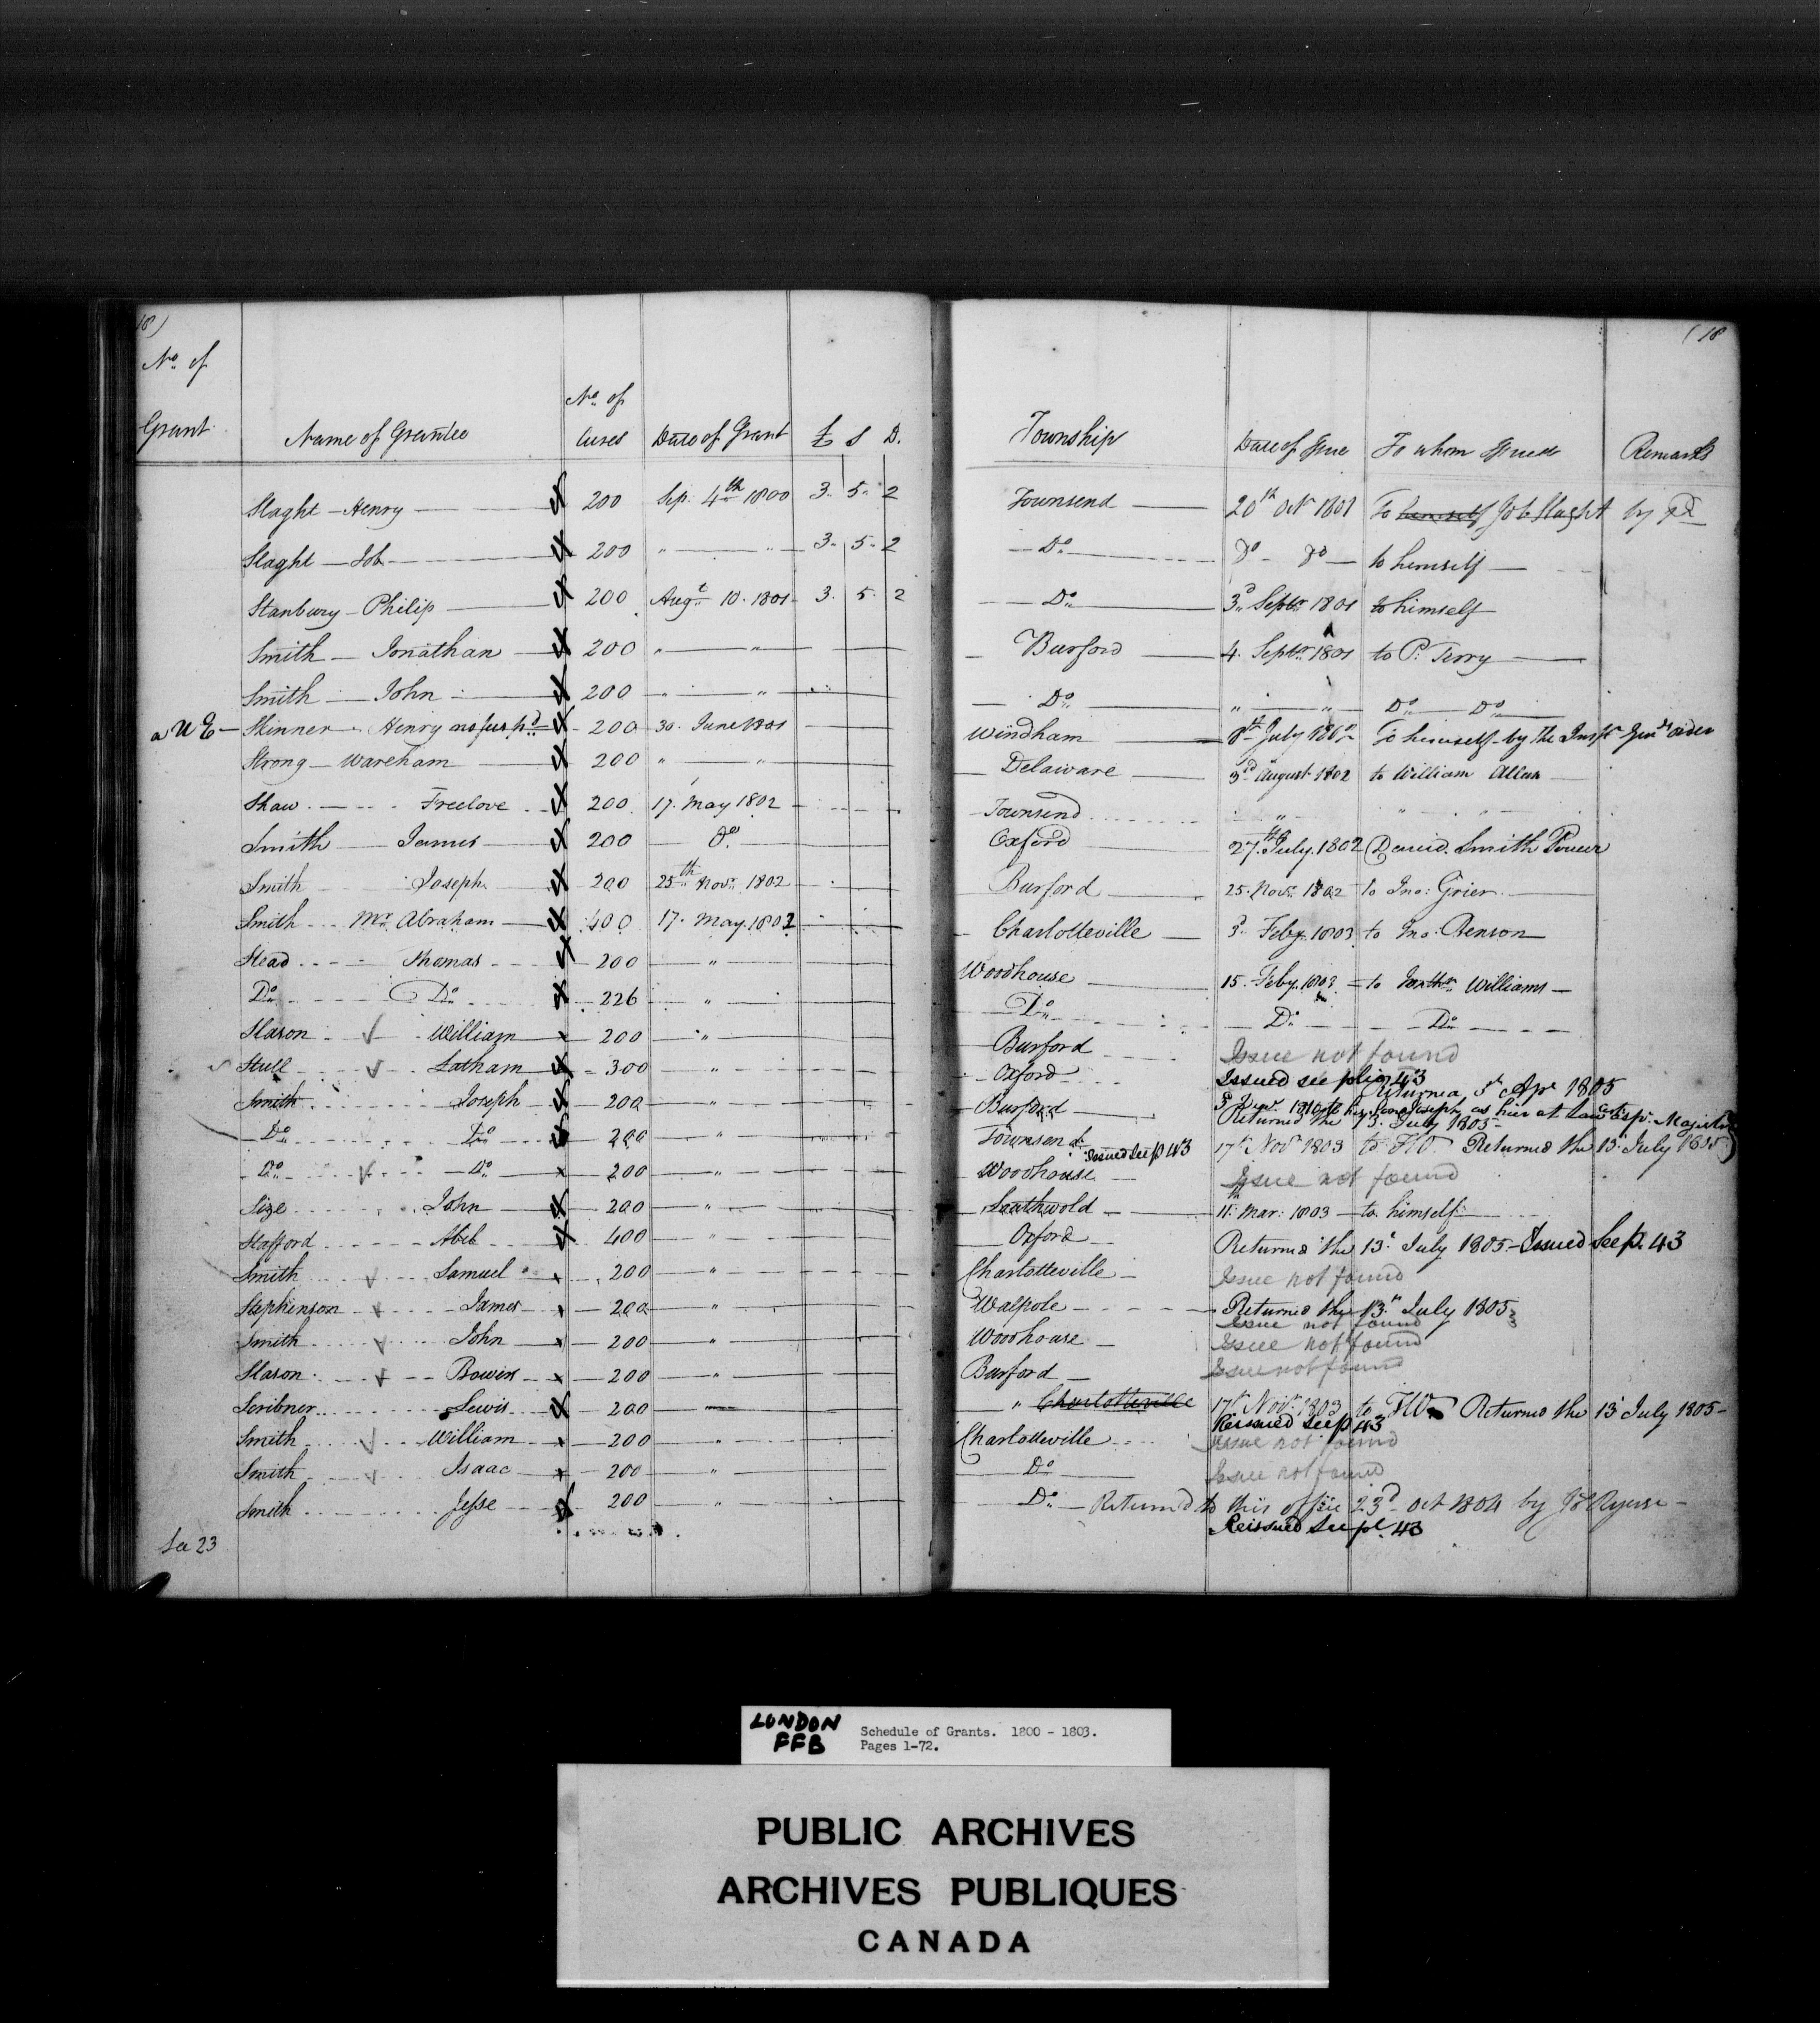 18) (18
No. of
Grant Name of Grantee No. of Acres Date of Grant £ S D. Township Date of Issue To whom Issued Remarks
Slaght - Henry 200 Sep. 4th 1800 3. 5. 2 Townsend 20th Octr 1801 To himself Job Slaght by
Slaght - Job 200 " " 3. 5. 2 Do Do Do to himself
Stanbury - Philip 200 Augt 10. 1801 3. 5. 2 Do 3d Septr 1801 to himself
Smith - Jonathan 200 " " Burford 4. Septr 1801 to P. Terry
Smith - John 200 " " Do " " Do Do
a U E - Skinner Henry no fus pd 200 30. June 1801 Windham 8th July 1802 To himself by the Inspr Genls order
Strong - Wareham 200 " " Delaware 3d August 1802 to William Allan
Shaw Freelove 200 17. May 1802 Townsend " " "
Smith James 200 Do Oxford 27th July 1802 David Smith Power
Smith Joseph 200 25th Novr 1802 Burford 25. Novr 1802 to Jno. Grier
Smith Mr Abraham 400 17. May 1802 Charlotteville 3d Feby. 1803 to Jno. Benson
Stead Thomas 200 " Woodhouse 15. Feby. 1803 to Williams
Do Do 226 " Do Do Do
Slason William 200 " Burford Issue not found
Stull Latham 300 " Oxford Issued see p. 43
Returned 5th Apr 1805
Smith Joseph 200 " Burford 1810 to his son Joseph as heir at law Majistr
Returned the 13. July 1805
Do Do 200 " Townsend 17th Novr 1803 to FW. Returned the 13. July 1805
Issued see p 43
Do Do 200 " Woodhouse Issue not found
Size John 200 " Southwold 11th Mar: 1803 to himself
Stafford Abel 400 " Oxford Returned the 13th July 1805 - Issued See p. 43
Smith Samuel 200 " Charlotteville Issue not found
Stephenson James 200 " Walpole Returned the 13th July 1805
Issue not found
Smith John 200 " Woodhouse Issue not found
Slason Bowen 200 " Burford Issue not found
Scribner Lewis 200 " Charlotteville 17th Novr 1803 to FW. Returned the 13th July 1805 -
Reissued see p 43
Smith William 200 " Charlotteville Issue not found
Smith Isaac 200 " Do Issue not found
Smith Jesse 200 " Do - Returned to this office 23d Oct 1804 by Ryerse -
Reissued See p. 43
See 23
LONDON
FFB
Schedule of Grants. 1800 - 1803.
Pages 1-72.
PUBLIC ARCHIVES
ARCHIVES PUBLIQUES
CANADA